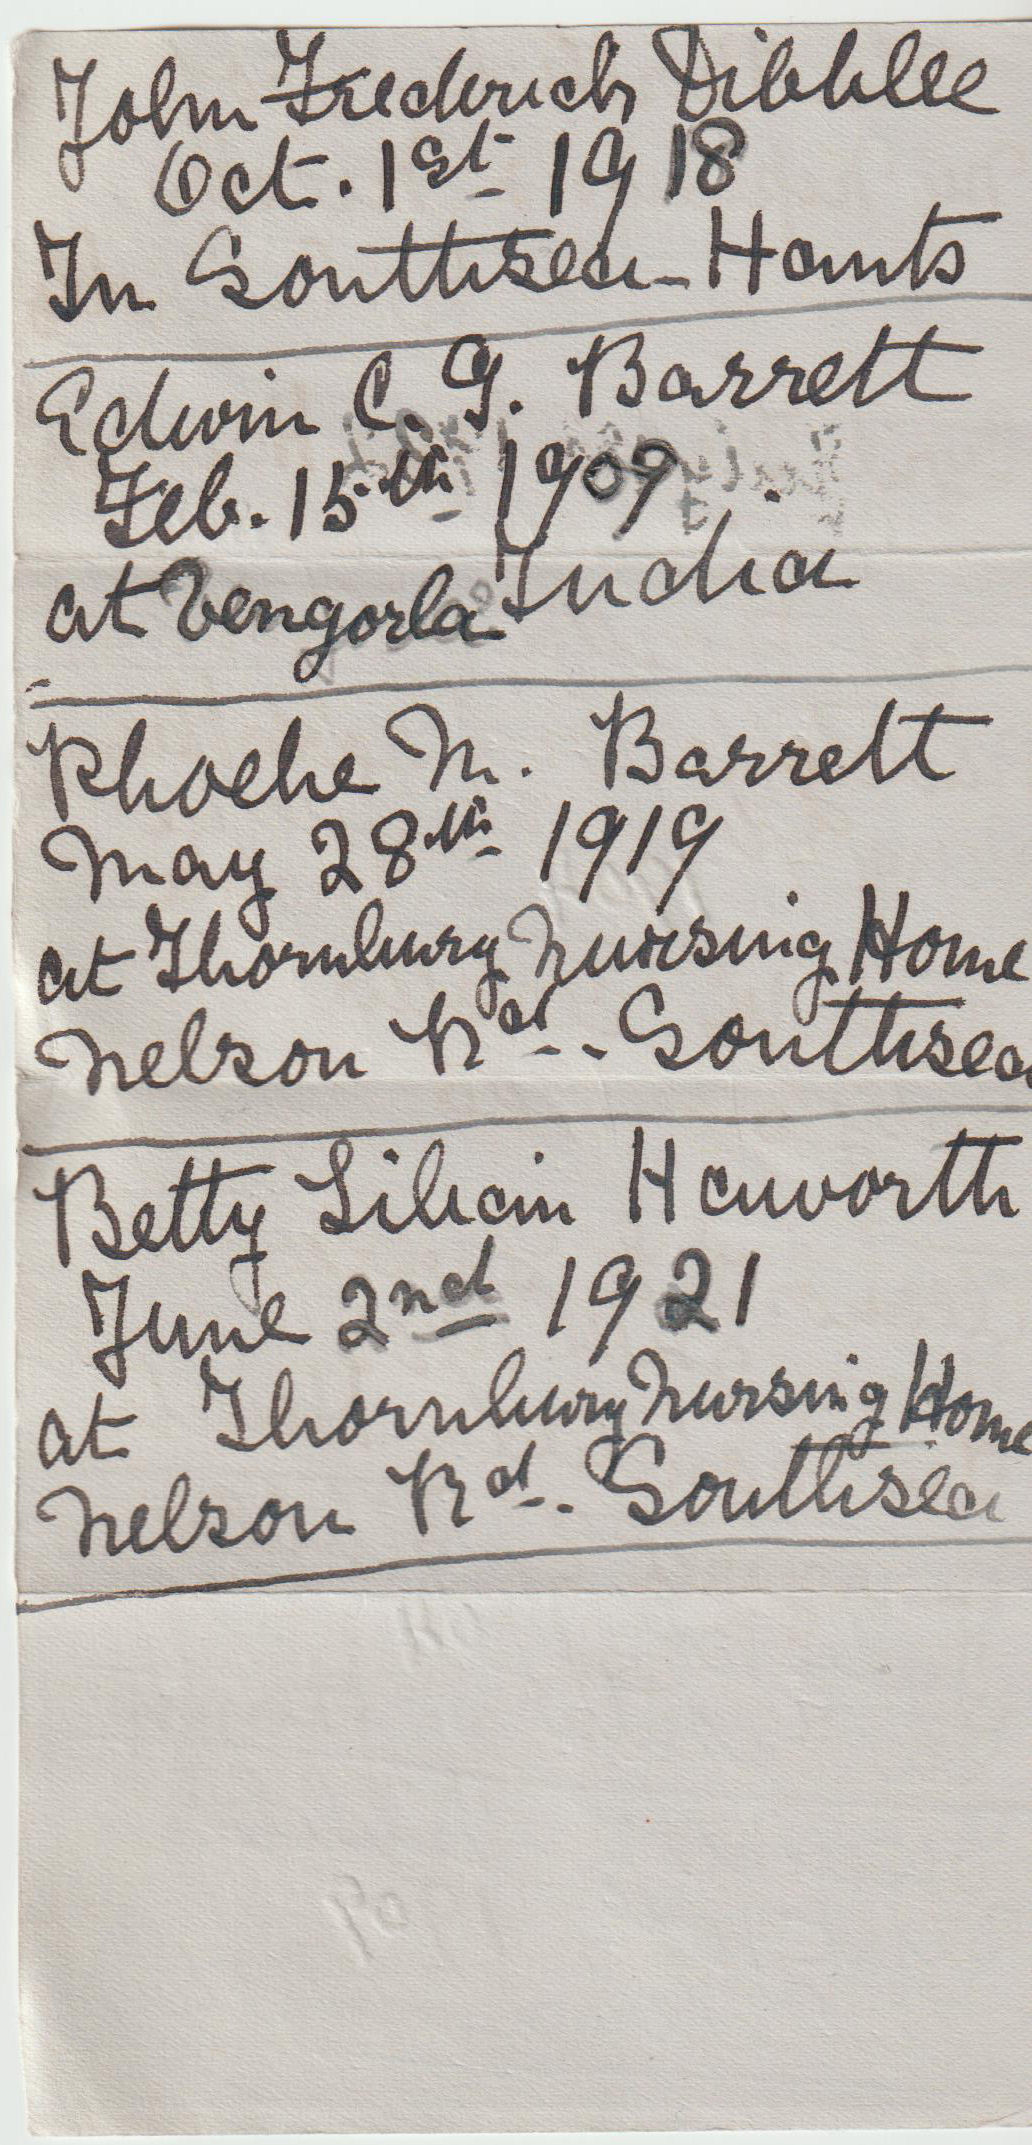 John Frederick Dibblee
Oct. 1st 1918
In Southsea - Hants
Edwin C. G. Barrett
Feb. 15th 1909
at Vengorla India
Phoebe M. Barrett
May 28th 1919
at Thornbury Nursing Home
Nelson Rd - Southsea
Betty Lilian Haworth
June 2nd 1921
at Thornbury Nursing Home
Nelson Rd - Southsea